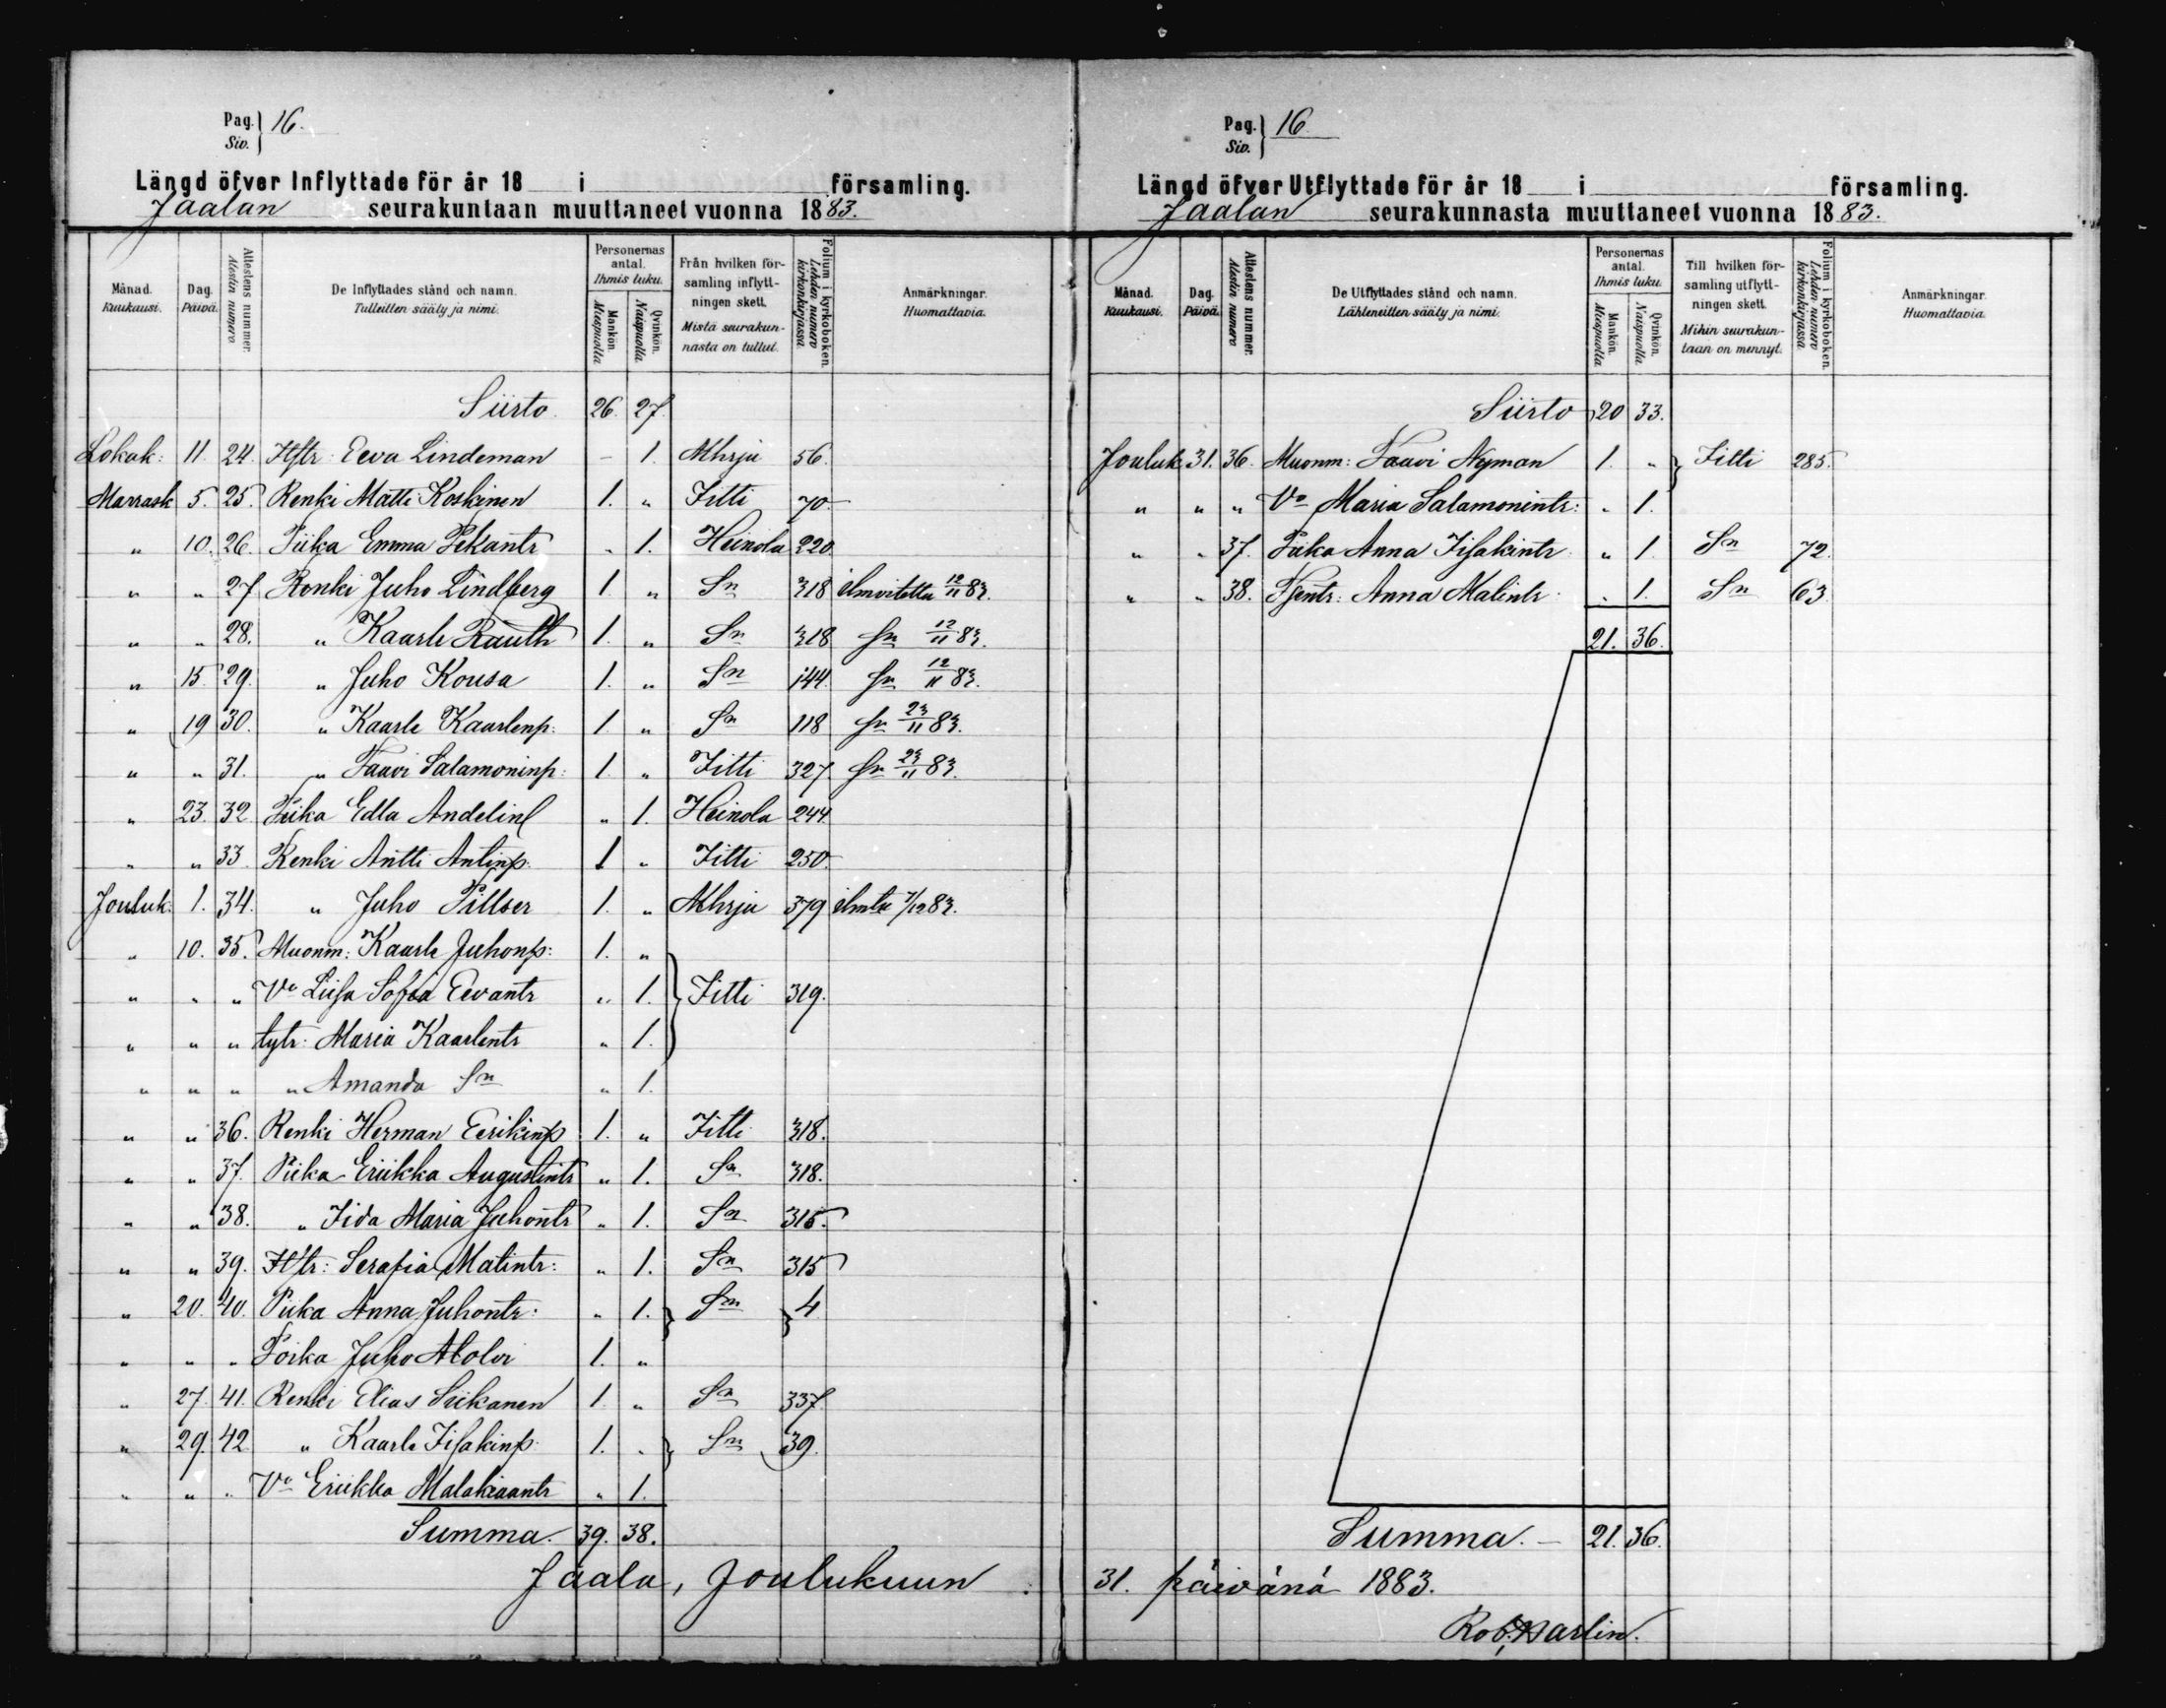 Pag. Siv. 16.
Längd öfver Inflyttade för år 18 i församling.
Jaalan seurakuntaan muuttaneet vuonna 1883.
Månad. Kuukausi. Dag. Päivä. Attestens nummer. Atestin numero De Inflyttades stånd och namn. Tulleitten sääty ja nimi. Personernas antal. Ihmis luku. Mankön. Miespuolia Qvinkön. Naispuolia. Från hvilken församling inflyttningen skett. Mistä seurakunnasta on tullut. Folium i kyrkoboken. Lehden numero kirkonkirjassa Anmärkningar. Huomattavia.
Siirto 26. 27.
Lokak: 11 24. Itstr: Eeva Lindeman - 1. Mhrju 56.
Marrask 5. 25. Renki Matti Koskinen 1. " Iitti 70.
" 10. 26. Piika Emma Pekantr " 1. Heinola 220
" " 27 Renki Juho Lindberg 1 " Sn 318 ilmoitettu 12/11 83.
" " 28. " Kaarle Rauth 1. " Sn 318 Sn 12/11 83.
" 15. 29. " Juho Kousa 1. " Sn 144. Sn 12/11 83.
" 19 30. " Kaarle Kaarlenp: 1. " Sn 118 Sn 23/11 83.
" " 31. " Taavi Salamoninp: 1. " Iitti 327 Sn 23/11 83.
" 23. 32 Piika Edla Andelin " 1. Heinola 244.
" " 33 Renki Antti Antinp. 1 " Iitti 250.
Jouluk: 1. 34. " Juho Pillser 1. " Mhrju 379 ilmtu 7/12 83.
" 10. 35. Muonm: Kaarle Juhonp: 1. "
" " " Vo Liisa Sofia Eevantr " 1. Iitti 319.
" " " tytr: Maria Kaarlentr " 1.
" " " " Amanda Sn " 1.
" " 36. Renki Herman Eerikinp 1. " Iitti 318.
" " 37. Piika Eriikka Augustintr " 1. Sn 318.
" " 38. " Iida Maria Juhontr " 1. Sn 315.
" " 39. Itstr: Serafia Matintr: " 1. Sn 315
" 20. 40. Piika Anna Juhontr: " 1. Sn 4
" " " Poika Juho 1. "
" 27. 41. Renki Elias Siikanen 1. " Sn 337.
" 29. 42 " Kaarle Iisakinp. 1. " Sn 39.
" " " Vo Eriikka Malakiaantr " 1.
Summa. 39. 38.
Jaala, Joulukuun
Pag. Siv. 16
Längd öfver Utflyttade för år 18 i församling.
Jaalan seurakunnasta muuttaneet vuonna 1883.
Månad. Kuukausi. Dag. Päivä. Attestens nummer. Atestin numero De Utflyttades stånd och namn. Lähteneitten sääty ja nimi. Personernas antal. Ihmis luku. Mankön. Miespuolia Qvinkön. Naispuolia. Till hvilken församling utflyttningen skett. Mihin seurakuntaan on mennyt. Folium i kyrkoboken. Lehden numero kirkonkirjassa Anmärkningar. Huomattavia.
Siirto 20 33.
Jouluk 31. 36. Muonm: Taavi Nyman 1. " Iitti 285.
" " " Vo Maria Salamonintr: " 1.
" " 37. Piika Anna Iisakintr " 1. Sn 72.
" " 38. Anna Matintr " 1. Sn 63
21. 36.
Summa. - 21. 36.
31. päivänä 1883.
Rob. Karlin.